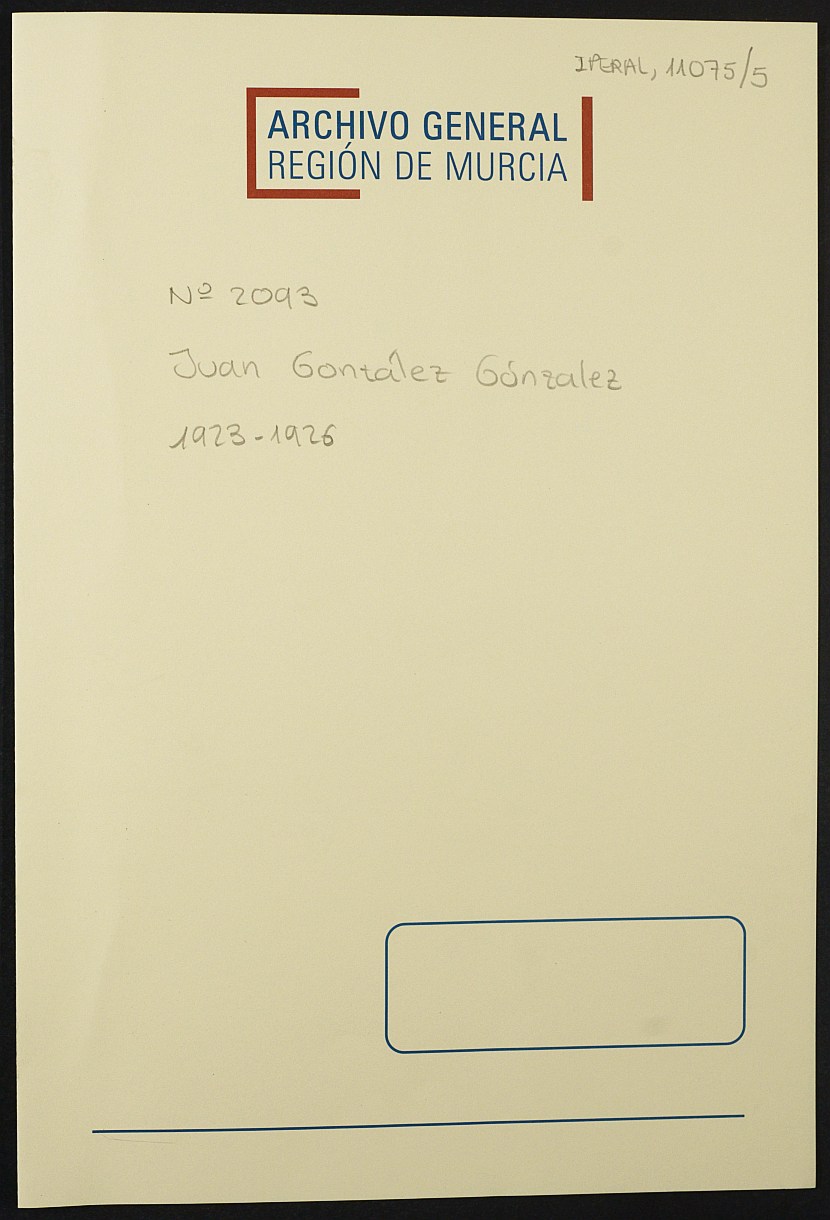 IPERAL, 11075/5
ARCHIVO GENERAL
REGIÓN DE MURCIA
Nº 2093
Juan González Gónzalez
1923-1926